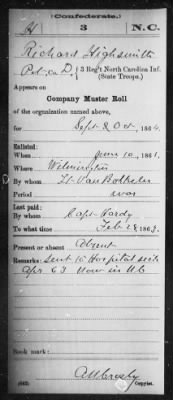 (Confederate.)
H 3 N.C.
Richard Highsmith
Pvt. Co. D., 3 Reg't North Carolina Inf.
(State Troops.)
Appears on
Company Muster Roll
of the organization named above,
for Sept & Oct, 1864.
Enlisted:
When June 10, 1861.
Where Wilmington
By whom Lt. Van
Period war
Last paid:
By whom Capt. Hardy
To what time Feb 28, 1863.
Present or absent Absent
Remarks: Sent to Hospital sick
Apr 63 Now in N.C.
Book mark:
(642) Copyist.